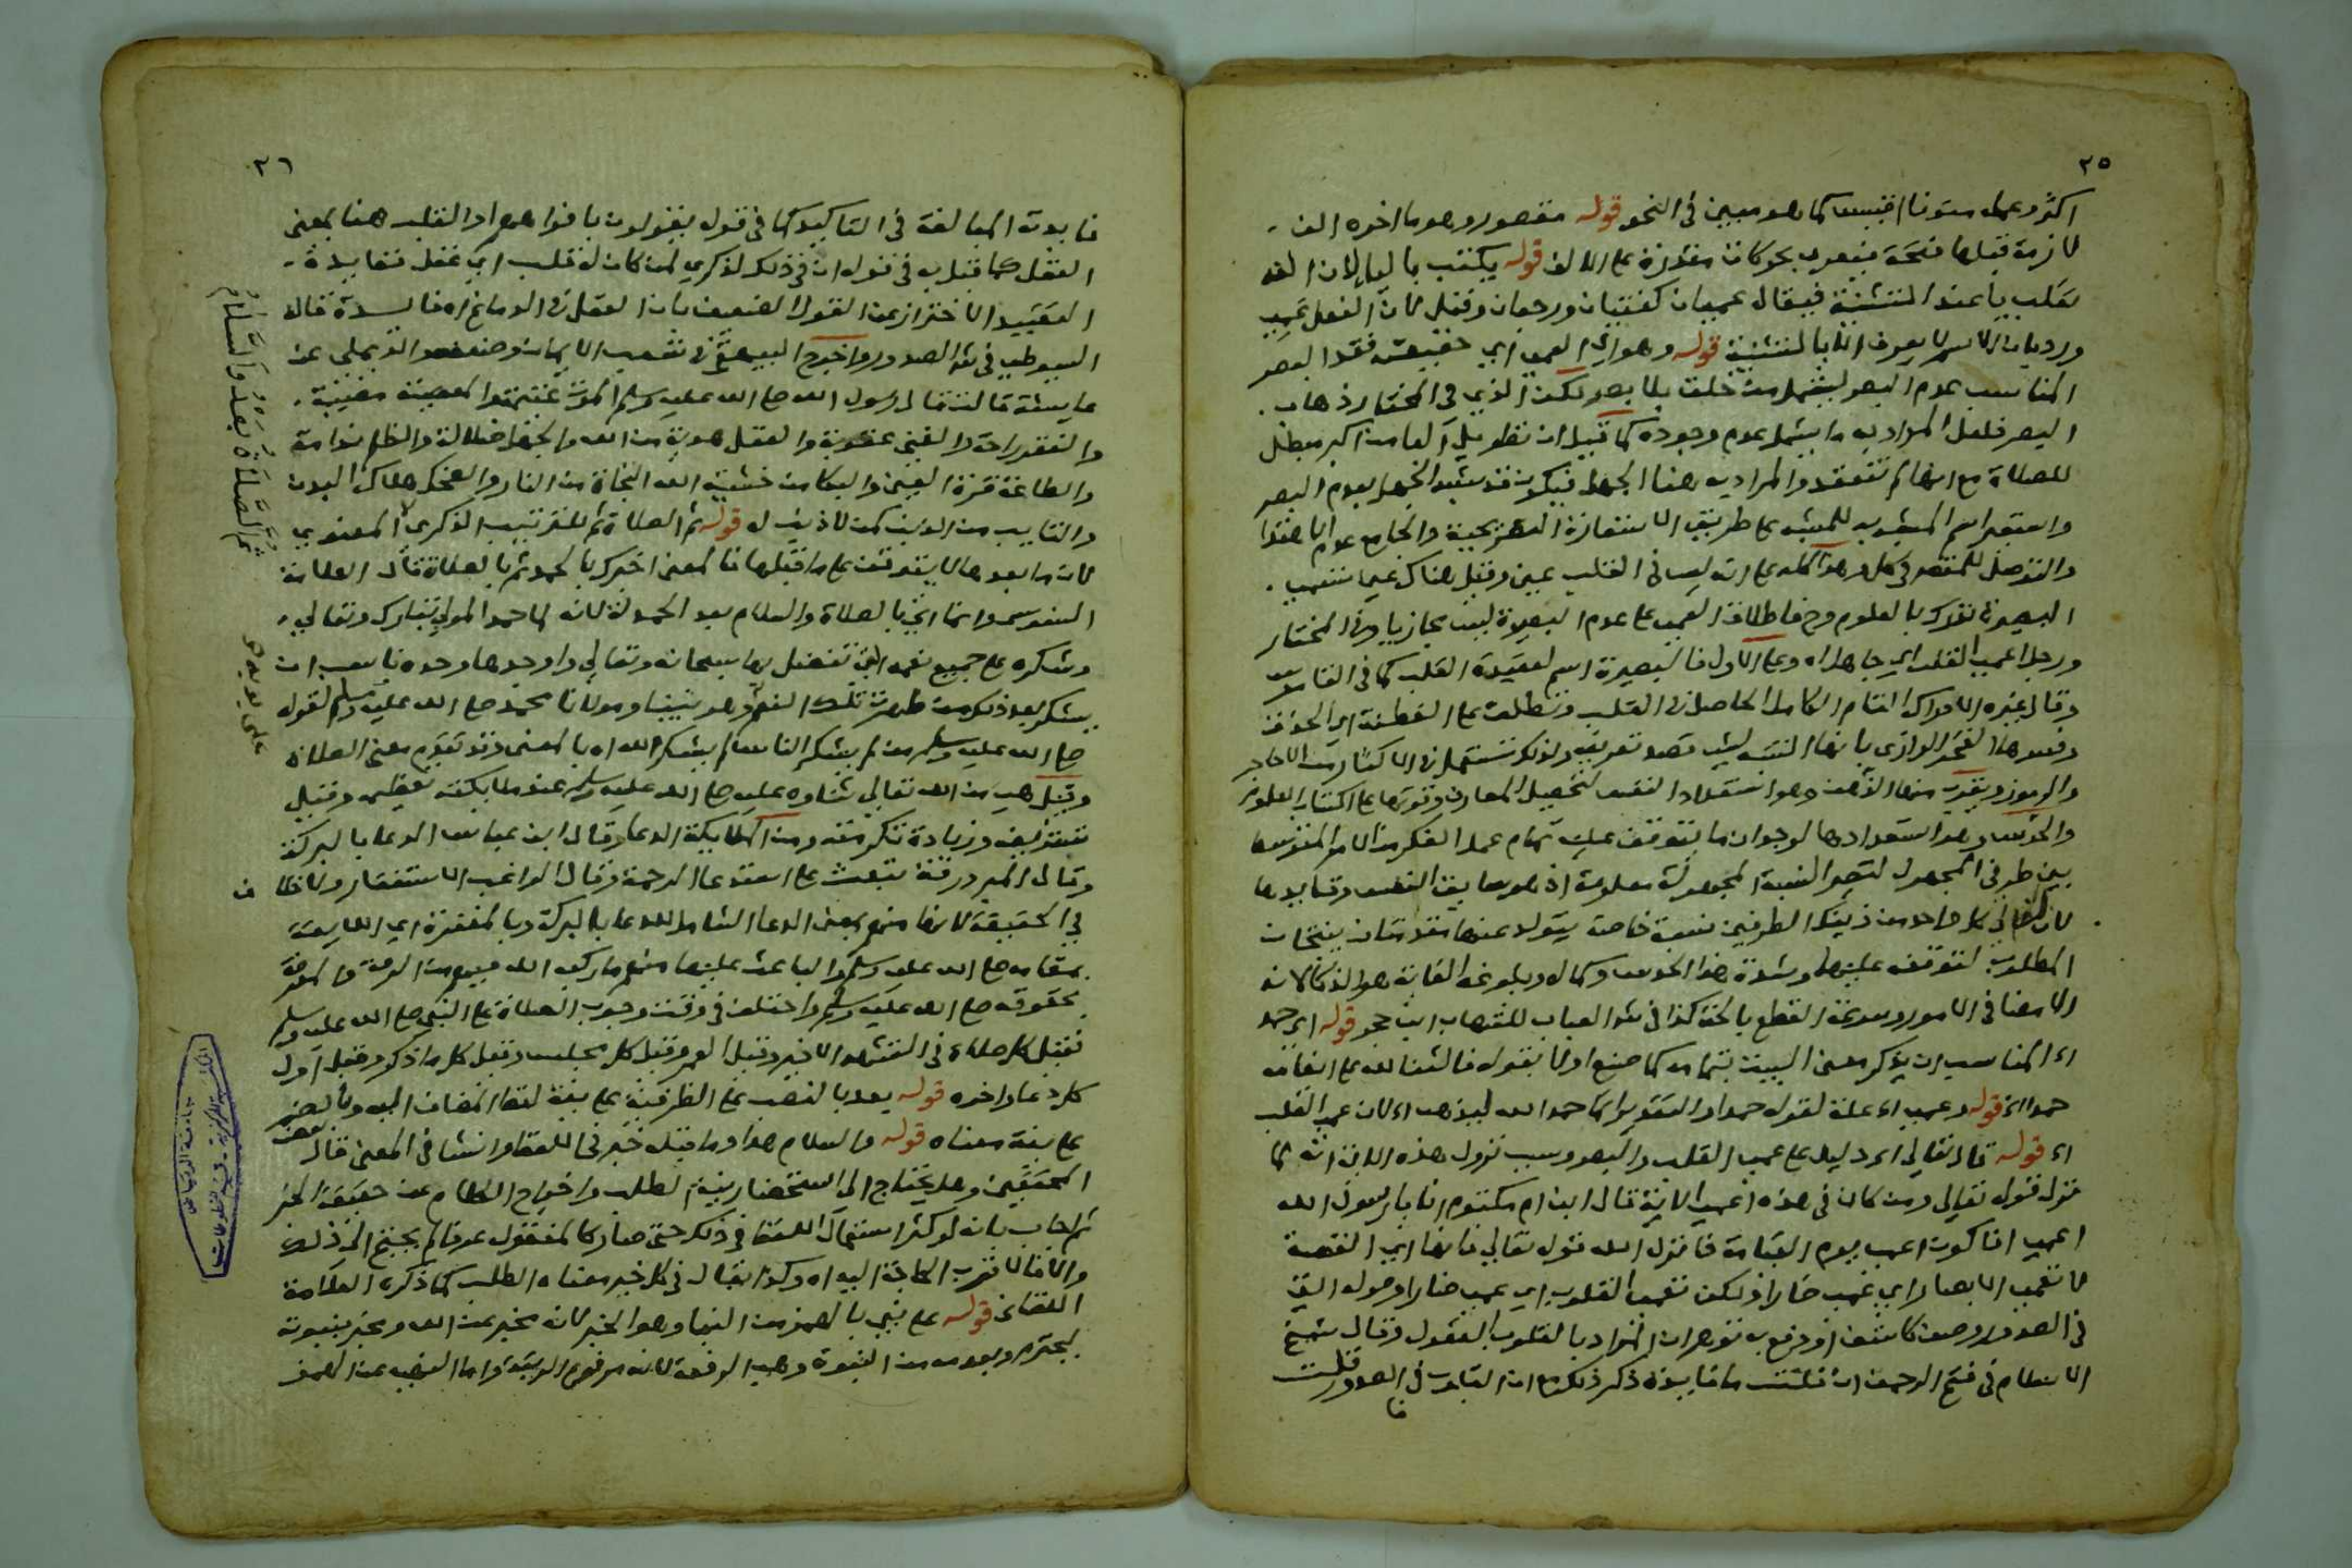 ٢٥
اكثر وعمله مستوفا اقتبس كما هو مبين في النحو قوله مقصور وهو ما اخره الف
لازمة قبلها فتحة فيعرب بحركات مقدرة على الالف قوله يكتب باليا لان الفه
تقلب ياء عند التثنية فيقال عميان كفتيان ورحيان وقيل لان الفعل عمي
ورد بان الاسم لا يعرف الا بالتثنية قوله وهو اي العمى اي حقيقته فقد البصر
المناسب عدم البصر ليشمل من خلق بلا بصر لكن الذي في المختار ذهاب
البصر فلعل المراد به ما يشمل عدم وجوده كما قيل ان تطويل العامة اكبر مبطل
للصلاة مع انها لم تنعقد والمراد به هنا الجهل فيكون قد شبه الجهل بعدم البصر
واستعير اسم المشبه به للمشبه على طريق الاستعارة التصريحية والجامع عدم الاهتدا
والتوصل للمقصود في كل وهذا كله على انه ليس في القلب عين وقيل هناك عين تسمى
البصيرة تدرك بالعلوم وح فاطلاق العمى على عدم البصيرة ليس مجازيا وفي المختار
ورجل اعمى القلب اي جاهل اه وعلى الاول فالبصيرة اسم لعقيدة القلب كما في القاموس
وقال غيره الادراك التام الكامل الحاصل في القلب وتطلق على الفطنة اي الحذق
وفسرها الفخر الرازي بانها التنبه لشي قصد تعريفه ولذلك تستعمل في الاكثار من الاحاجي
والرموز ويقرب منها الذهن وهو استعداد النفس لتحصيل المعارف وقوتها على اكتساب العلوم
والحدس وهو استعدادها لوجدان ما يتوقف عليه تمام عمل الفكر من الامر المتوسط
بين طرفي المجهول لتصير النسبة المجهولة معلومة اذ هو سابق النفس وقايدها
لان لتالي كل واحد من ذينك الطرفين نسبة خاصة يتولد عنها مقدمتان ينتجان
المطلوب لتوقفه عليهما وشدة هذا الحدس وكماله وبلوغه الغاية هو الذكا لانه
الامضا في الامور وسرعة القطع بالحق كذا في شرح العباب للشهاب ابن حجر قوله اي حمد
اه المناسب ان يذكر معنى البيت بتمامه كما صنع اولا بقوله فالثنا لله على انعامه
حمدا اه قوله وعمى اه علة لقوله حمدا والتقدير انما حمد الله ليذهب اه لان عمى القلب
اه قوله قال تعالى اي دليل على عمى القلب والبصر وسبب نزول هذه الاية انه لما
نزل قوله تعالى ومن كان في هذه اعمى الاية قال ابن ام مكتوم انا يا رسول الله
اعمى افاكون اعمى يوم القيامة فانزل الله قوله تعالى فانها اي القصة
لا تعمى الابصار اي عمى ضارا ولكن تعمى القلوب اي عمى ضارا وقوله التي
في الصدور وصف كاشف او دفع به توهم ان المراد بالقلوب العقول وقال شيخ
الاسلام في فتح الرحمن ان قلت ما فايدة ذكر ذلك مع ان القلوب في الصدور قلت
فا
٢٦
فايدته المبالغة في التاكيد كما في قوله يقولون بافواههم او القلب هنا بمعنى
العقل كما قيل به في قوله ان في ذلك لذكرى لمن كان له قلب اي عقل ففايدة
التقييد الاحتراز عن القول الضعيف بان العقل في الدماغ اه فايدة قال
السيوطي في شرح الصدور واخرج البيهقي في شعب الايمان وضعفه الديلمي عن
عايشة قالت قال رسول الله صلى الله عليه وسلم الموت غنيمة والمعصية مصيبة
والفقر راحة والغنى عقوبة والعقل هدية من الله والجهل ضلالة والظلم ندامة
والطاعة قرة العين والبكا من خشية الله النجاة من النار والضحك هلاك البدن
والتايب من الذنب كمن لا ذنب له قوله ثم الصلاة ثم للترتيب الذكري لا المعنوي
لان ما بعدها لا يتوقف على ما قبلها فالمعنى اخبرك بالحمد ثم بالصلاة قال العلامة
السنوسي وانما اتى بالصلاة والسلام بعد الحمد لله لانه لما حمد المولى تبارك وتعالى
وشكره على جميع نعمه التي تفضل بها سبحانه وتعالى واوجدها وحده ناسب ان
يشكر بعد ذلك من ظهرت تلك النعم وهو نبينا ومولانا محمد صلى الله عليه وسلم لقوله
صلى الله عليه وسلم من لم يشكر الناس لم يشكر الله اه بالمعنى وقد تقدم معنى الصلاة
وقيل هي من الله تعالى ثناوه عليه صلى الله عليه وسلم عند ملايكته تعظيمه وقيل
تشريفه وزيادة تكرمته ومن الملايكة الدعا وقال ابن عباس الدعا بالبركة
وقال المبرد رقة تبعث على استدعا الرحمة وقال الراغب الاستغفار ولا خلاف
في الحقيقة لانها منهم بمعنى الدعا الشامل للدعا بالبركة وبالمغفرة اي اللايقة
بمقامه صلى الله عليه وسلم والباعث عليها منهم ما ركبه الله فيهم من الرقة والمعرفة
بحقوقه صلى الله عليه وسلم واختلف في وقت وجوب الصلاة على النبي صلى الله عليه وسلم
فقيل كل صلاة في التشهد الاخير وقيل العمر وقيل كل مجلس وقيل كل ما ذكر وقيل اول
كل دعا واخره قوله بعد بالنصب على الظرفية على نية لفظ المضاف اليه وبالضم
على نية معناه قوله والسلام هذا وما قبله خبر في اللفظ انشا في المعنى قال بعض
المحققين وهل يحتاج الى استحضار نية الطلب واخراج الكلام عن حقيقة الخبر
ثم اجاب بانه لو كثر استعمال اللفظ في ذلك حتى صار كالمنقول عرفا لم يحتج الى ذلك
والا فالاقرب الحاجة اليه اه وكذا يقال في كل خبر معناه الطلب كما ذكره العلامة
اللقاني قوله على نبي بالهمز من النبا وهو الخبر لانه مخبر عن الله ومخبر بنبوته
ليحترم وبعدمه من النبوة وهي الرفعة لانه مرفوع الرتبة واما النهي عن الهمز
ثُمَّ الصَّلَاةُ بَعْدُ وَالسَّلَامُ